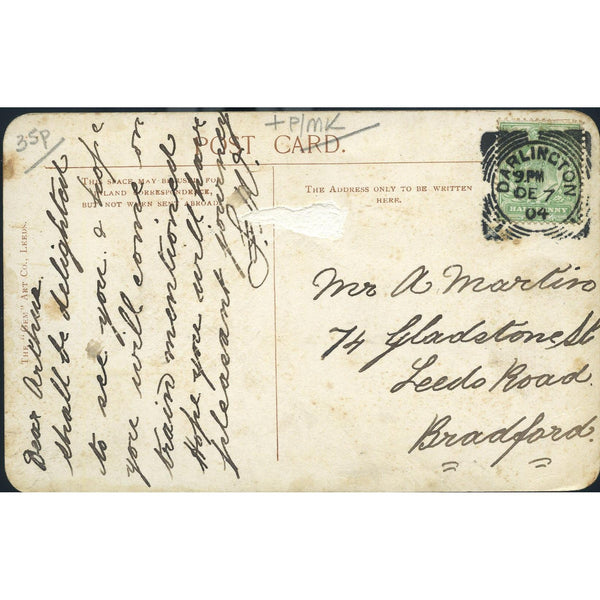 35P
+P/MK
POST CARD.
THIS SPACE MAY BE USED FOR
INLAND CORRESPONDENCE,
BUT NOT WHEN SENT ABROAD.
THE ADDRESS ONLY TO BE WRITTEN
HERE.
DARLINGTON
9PM
DE 7
04
HALFPENNY
THE "GEM" ART CO., LEEDS.
Dear Arthur.
shall be delighted
to see you. & hope
you will come on
train mentioned
Hope you will have
pleasant journey
Mr A Martin
74 Gladstone St
Leeds Road.
Bradford.